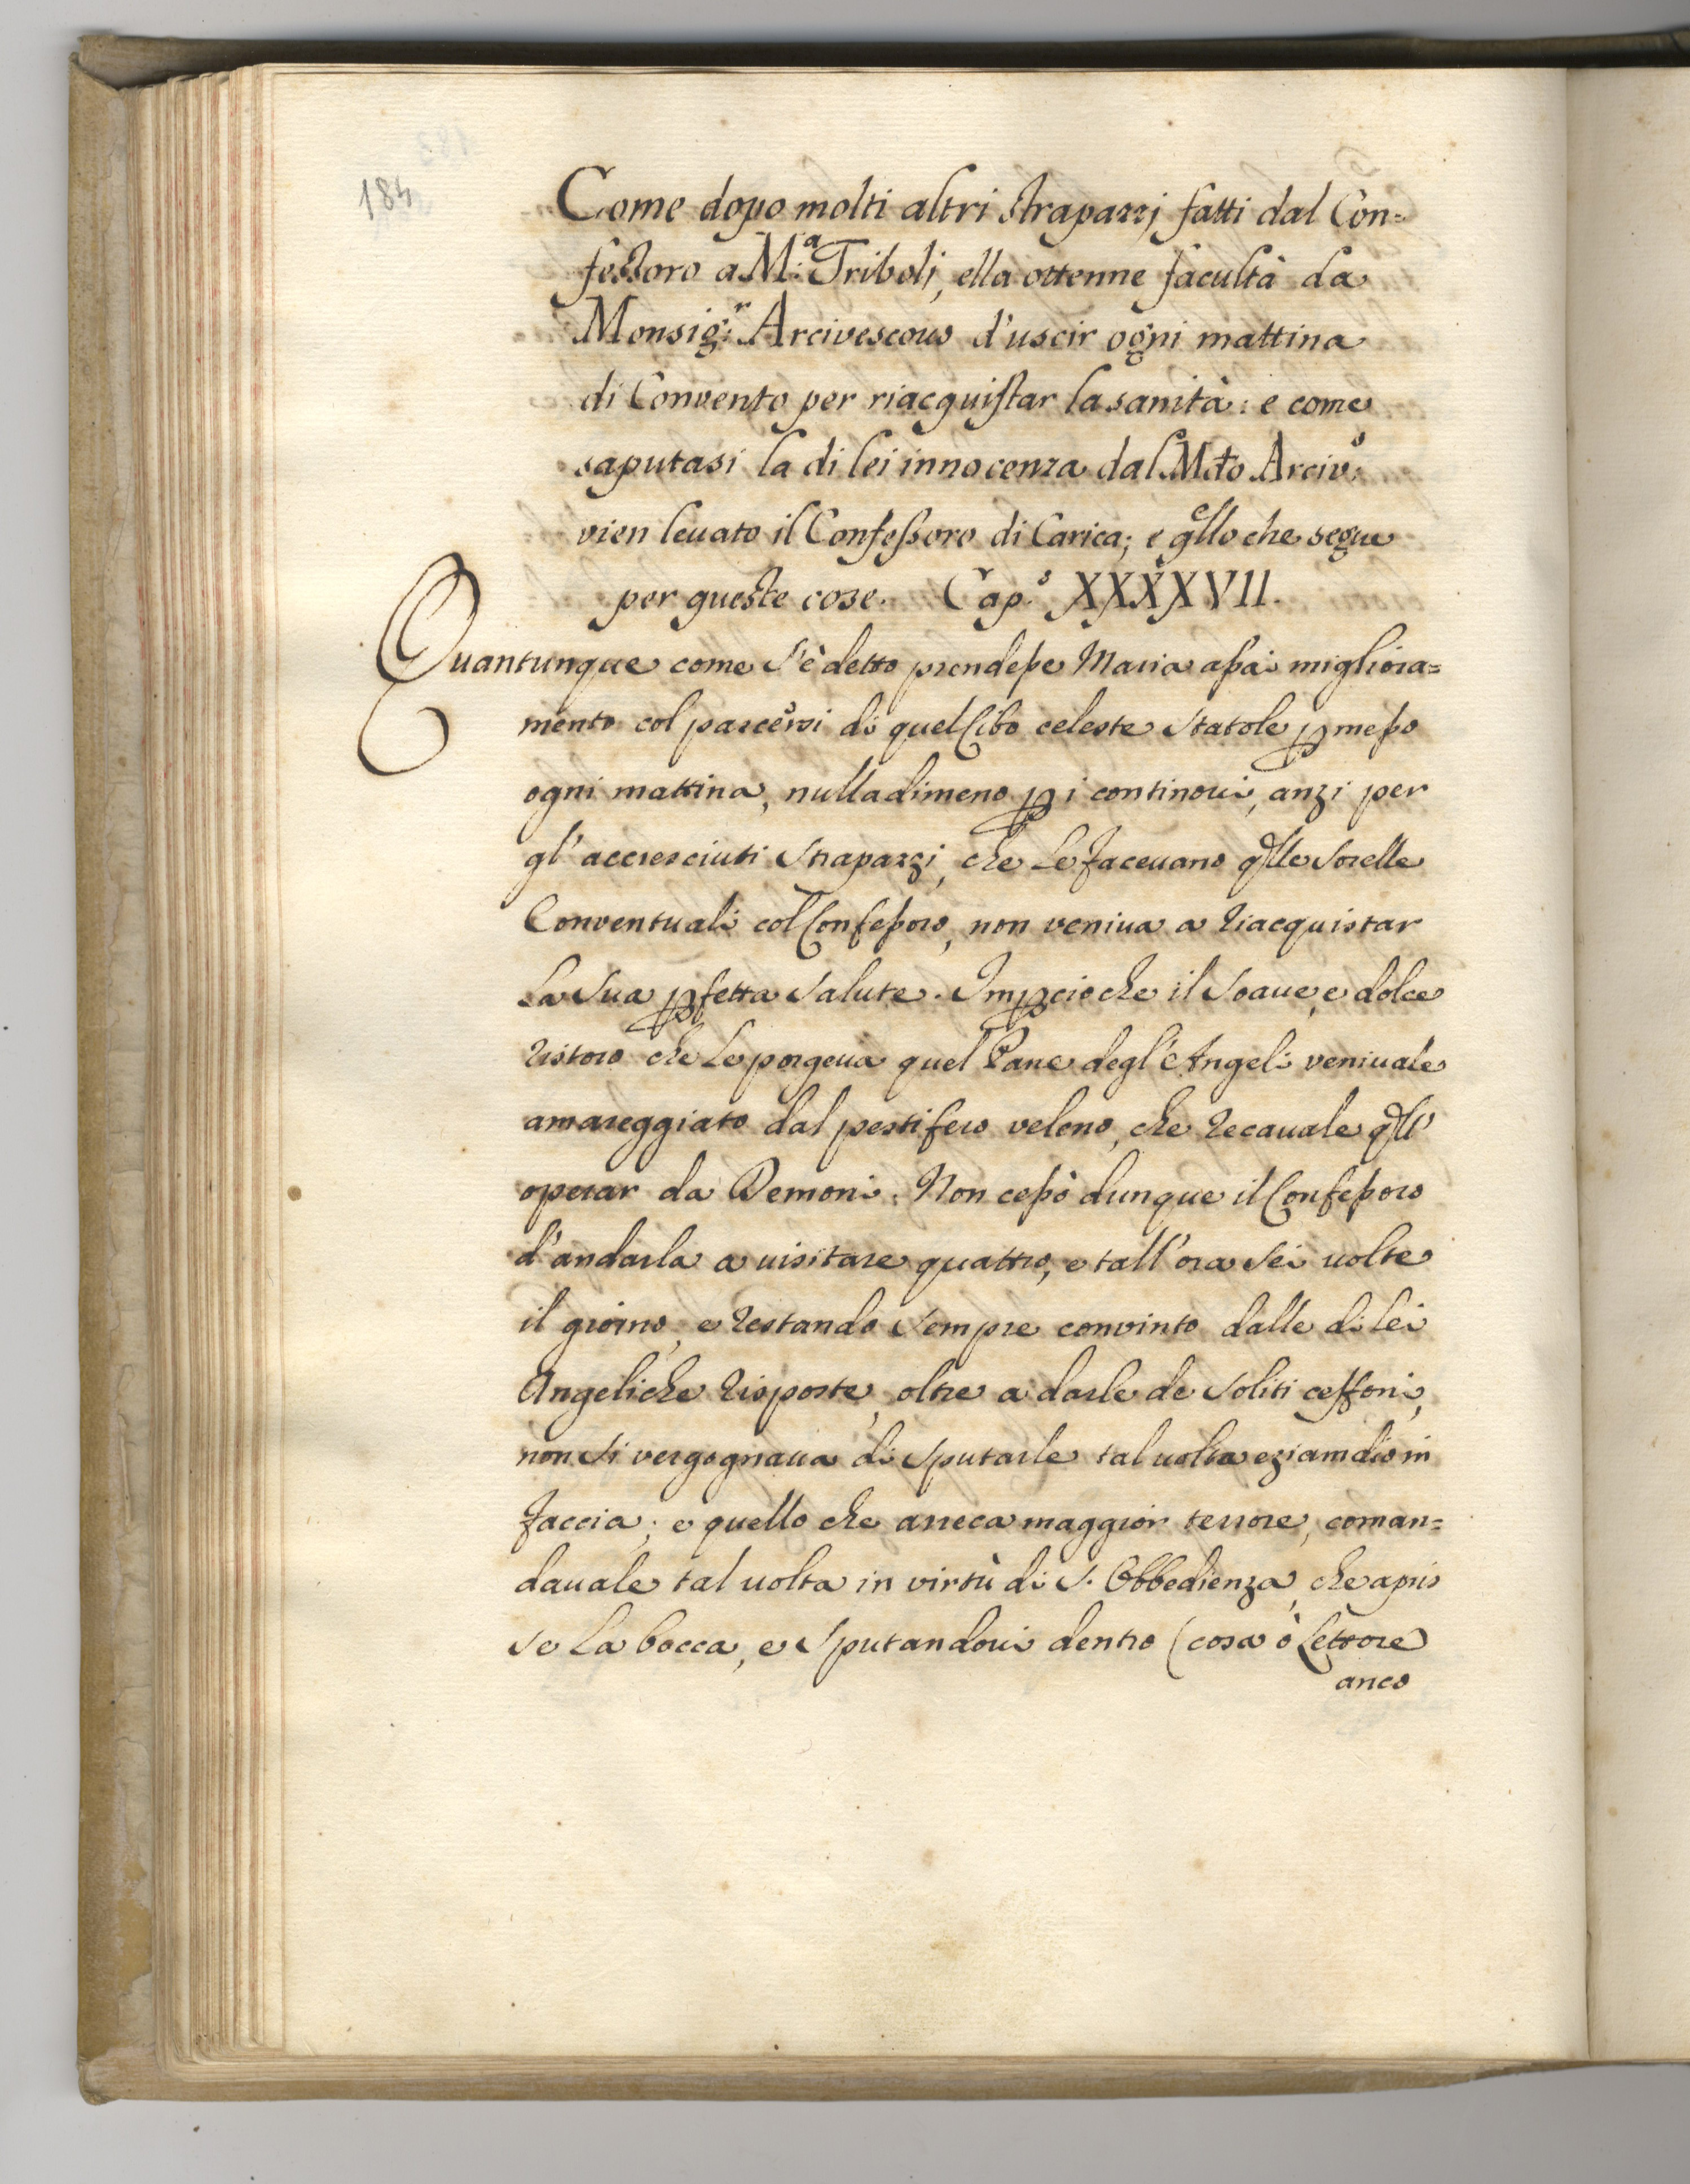 184
Come dopo molti altri strapazzj fatti dal Con=
fessoro a M:ª Triboli, ella ottenne facultà da
Monsig:r Arcivescouo d'uscir ogni mattina
di Convento per riacquistar la sanità: e come
saputasi la di lei innocenza dal Mdto Arciv:o
vien leuato il Confessoro di Carica; e qello che segue
per queste cose. Cap.o XXXXVII.
Quantunque come s'è detto prendesse Maria assai migliora=
mento col pascersi di quel Cibo celeste statole ꝑmesso
ogni mattina, nulladimeno ꝑ i continoui, anzi per
gl'accresciuti strapazzi, che le faceuano qlle sorelle
Conventuali col Confessoro, non veniua a riacquistar
la sua ꝑfetta salute. Imꝑcioche il soaue, e dolce
ristoro che le porgeua quel Pane degl'Angeli veniuale
amareggiato dal pestifero veleno, che recauale qll'
operar da Demoni. Non cessò dunque il Confessoro
d'andarla a uisitare quattro, e tall'ora sei uolte
il giorno, e restando sempre convinto dalle di lei
Angeliche risposte, oltre a darle de soliti ceffoni,
non si vergognaua di sputarle tal uolta eziamdio in
faccia; e quello che arreca maggior terrore, coman=
dauale tal uolta in virtù di S. Obbedienza, che apris
se la bocca, e sputandoui dentro (cosa ò Lettore
anco